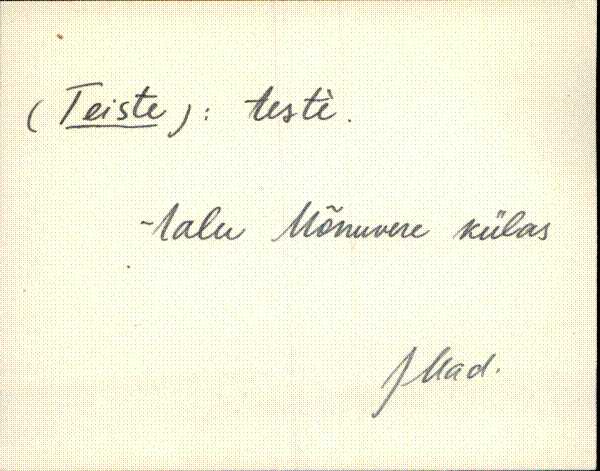 (Teiste): testè.
-talu Mõnuvere külas
JMad.